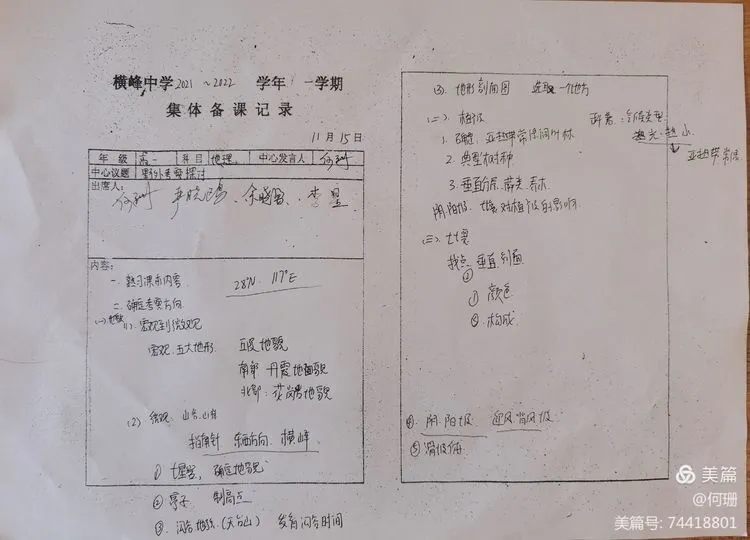 横峰中学2021~2022 学年 一学期
集体备课记录
11月15日
年级 高一 科目 地理 中心发言人 何珊
中心议题 野外考察探讨
出席人:
何珊 李星
内容:
一、熟习课本内容 28°N 117°E
二、确定考察方向
(一)地貌(1) 宏观到微观
宏观 五大地形 丘陵地貌
南部 丹霞地貌
北部:花岗岩地貌
(2) 微观 山谷、山脊
指南针 东西方向 横峰
确定地貌
② 亭子 制高点
(天台山) 时间
③ 地形剖面图 选取一个地方
(二) 植被
1. 确定 亚热带常绿阔叶林
2. 典型树种
3. 垂直分层
阴阳坡 土壤对植被的影响
亚热带常绿
(三) 土壤
找点 垂直剖面
① 颜色
② 构成
④ 阴、阳坡 迎风 背风坡
⑤ 滑坡体
美篇
@何珊
美篇号: 74418801